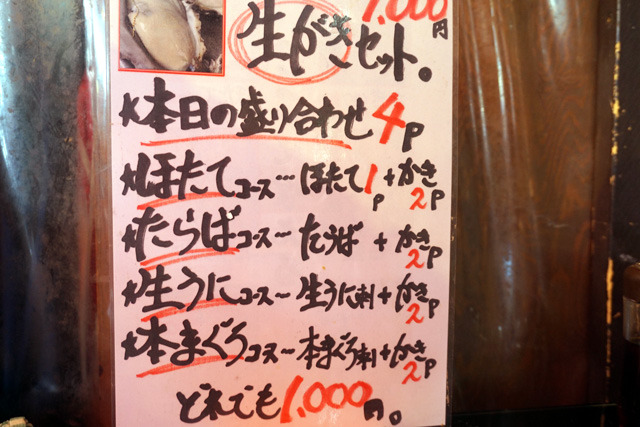 1,000円
生がきセット。
★本日の盛り合わせ 4P
★ほたてコース…ほたて1P+かき2P
★たらばコース…たらば+かき2P
★生うにコース…生うに刺+かき2P
★本まぐろコース…本まぐろ刺+かき2P
どれでも1,000円。